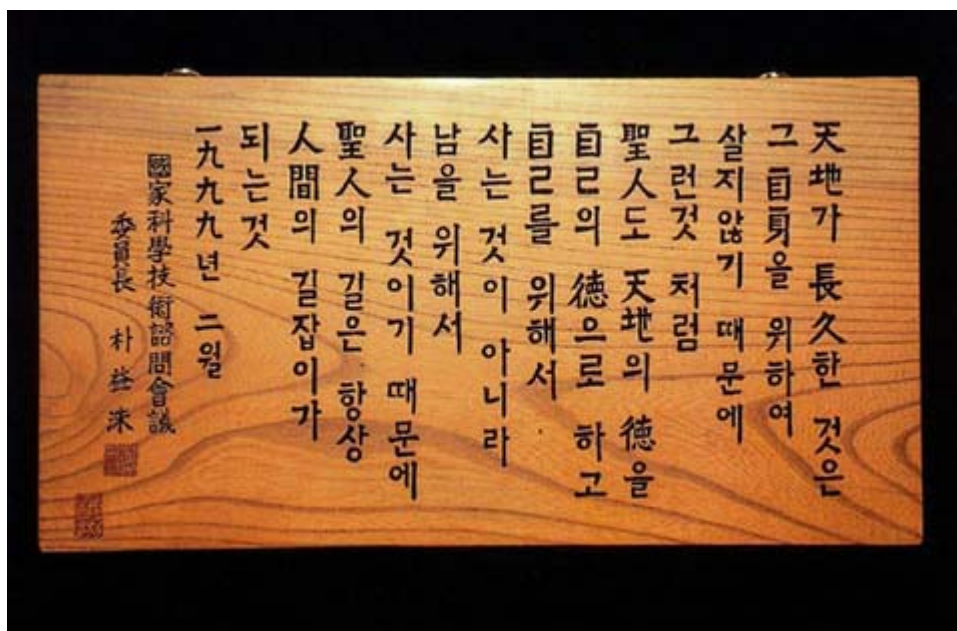 天地가 長久한 것은
그 自身을 위하여
살지않기 때문에
그런것 처럼
聖人도 天地의 德을
自己의 德으로 하고
自己를 위해서
사는 것이 아니라
남을 위해서
사는 것이기 때문에
聖人의 길은 항상
人間의 길잡이가
되는것
一九九九년 二월
國家科學技術諮問會議
委員長 朴益洙